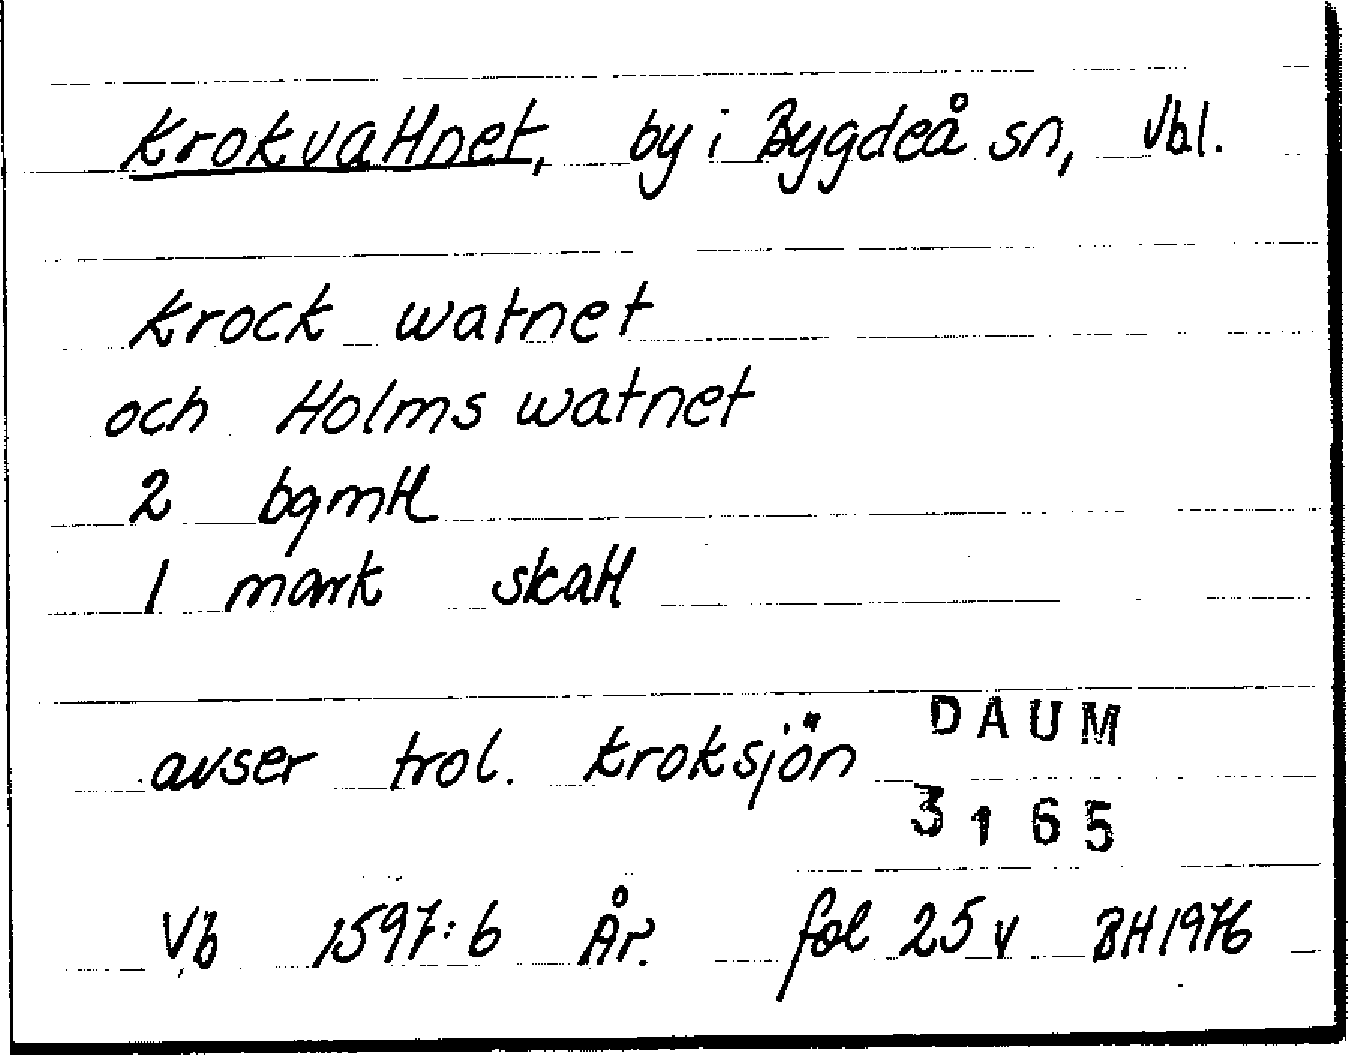 Krokvattnet, by i Bygdeå sn, Vbl.
Krock watnet
och Holms watnet
2 bqmtl
1 mark skatt
avser trol. Kroksjön
DAUM
3165
Vb 1597:6 År. fol 25 v BH 1976